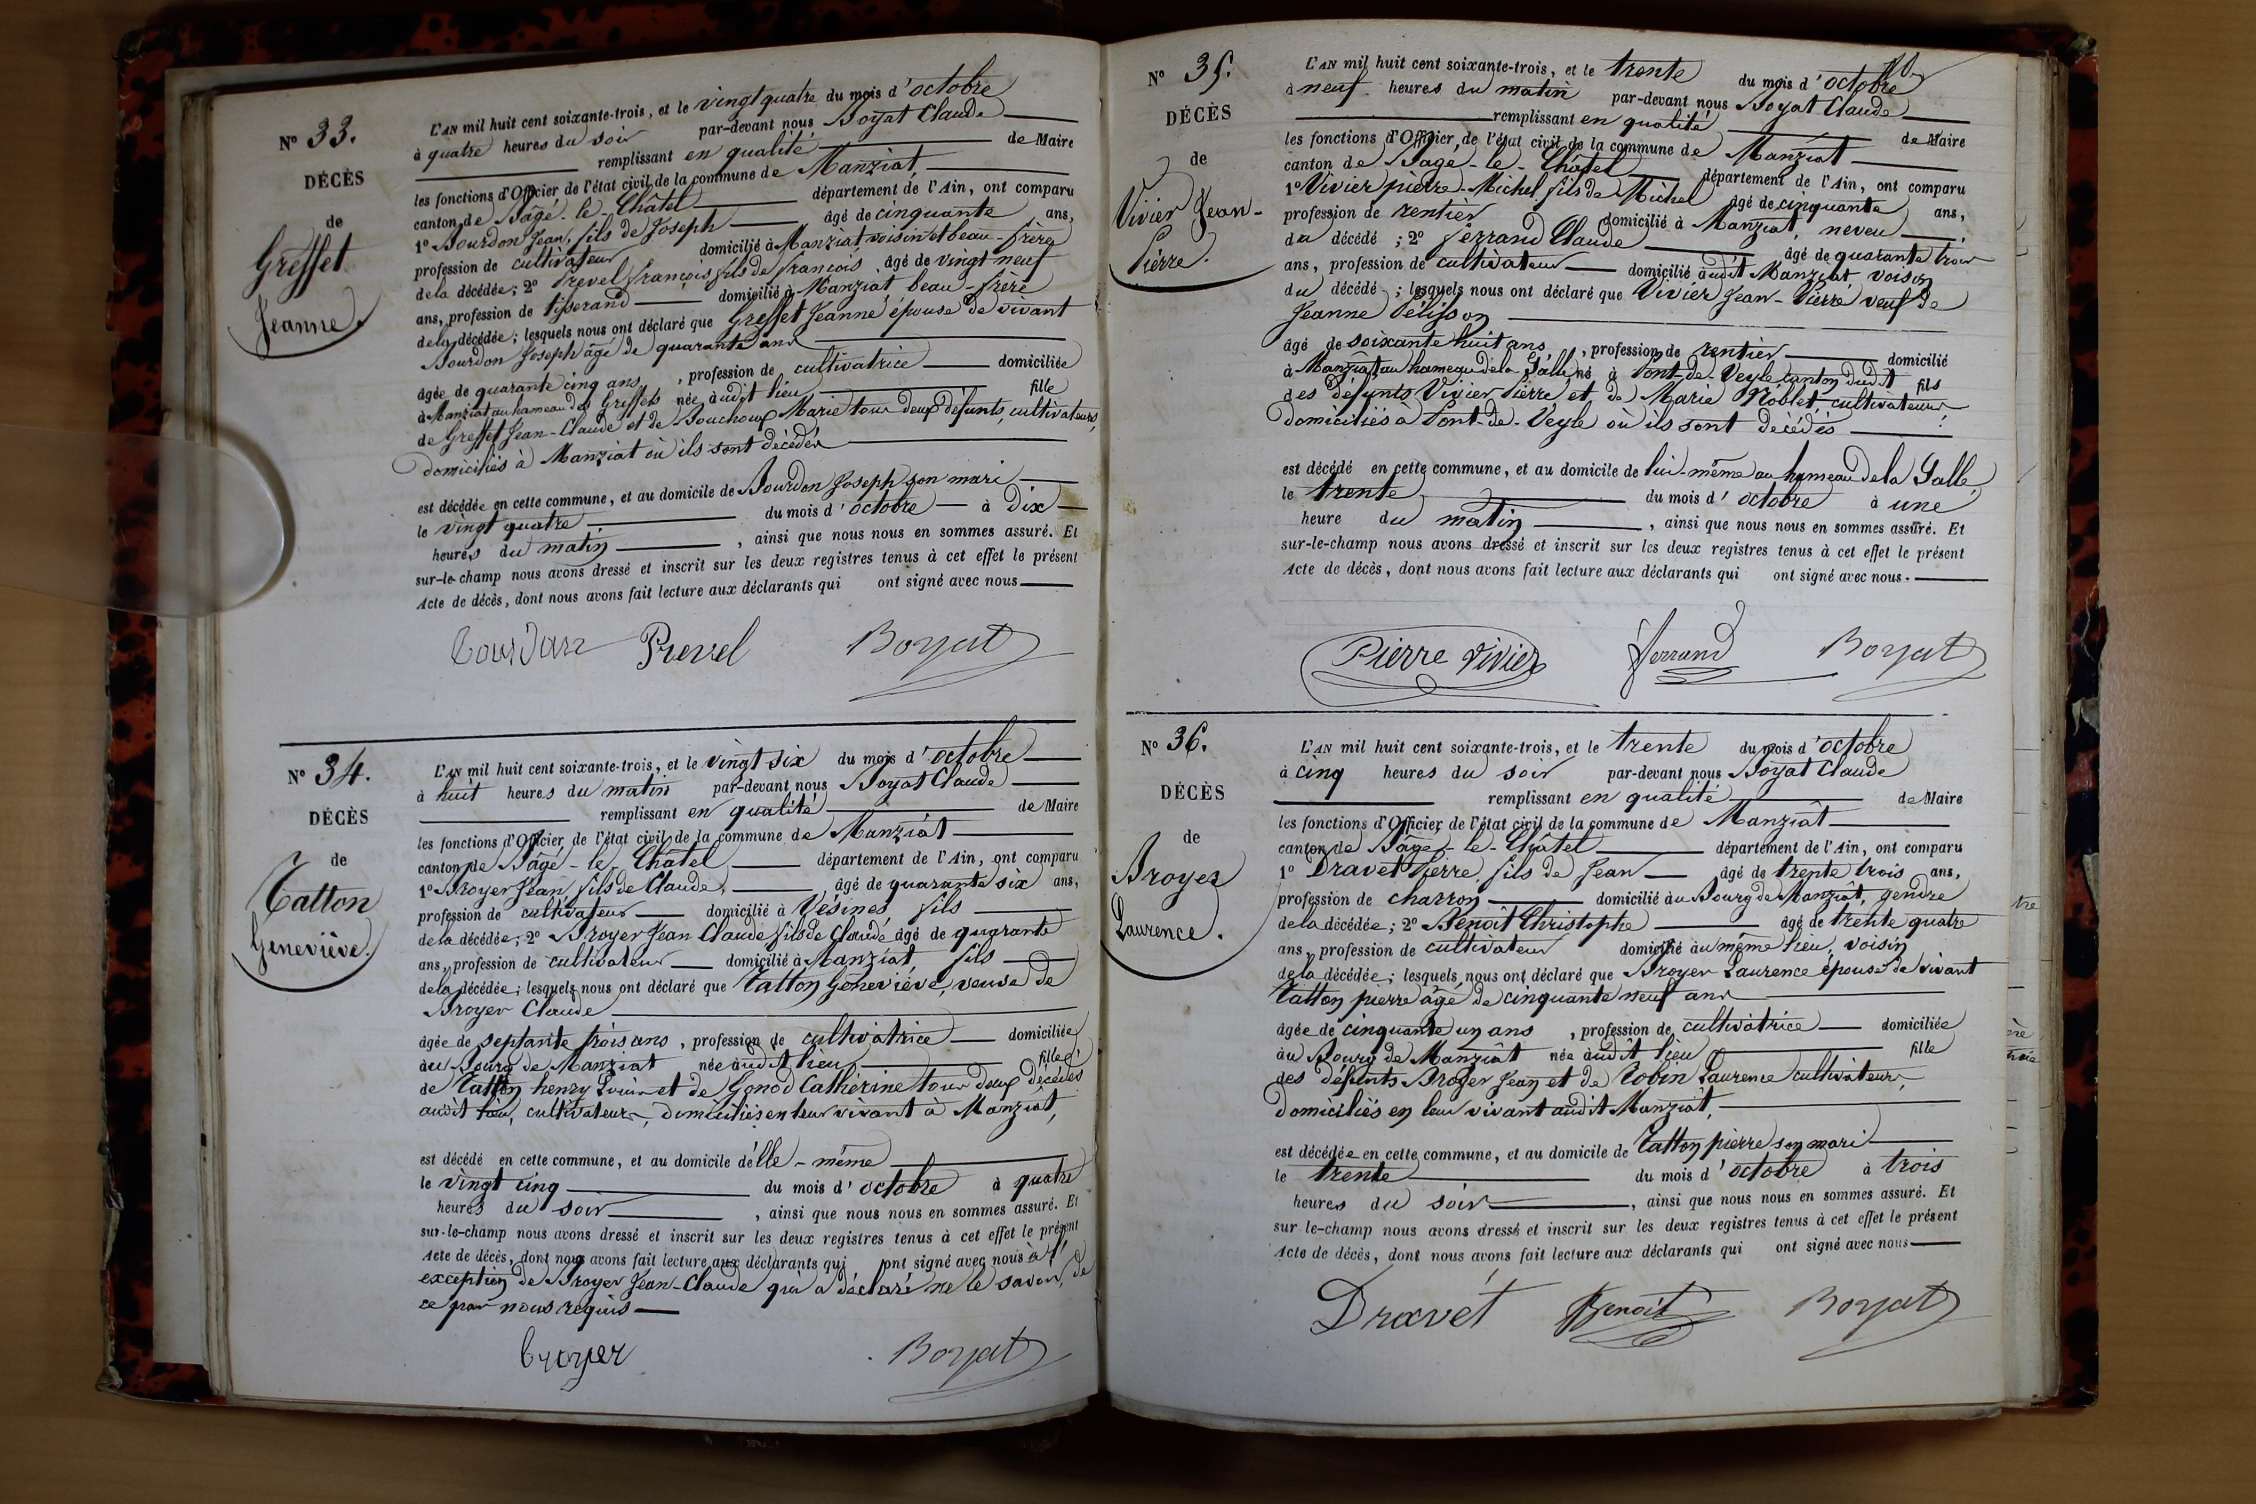 N° 33.
DÉCÈS
de
Greffet
Jeanne.
L'AN mil huit cent soixante-trois, et le vingt quatre du mois d'octobre
à quatre heures du soir par-devant nous Boyat Claude
remplissant en qualité de Maire
les fonctions d'Officier de l'état civil de la commune de Manziat
canton de Bâgé-le-Châtel département de l'Ain, ont comparu
1° Bourdon Jean, fils de Joseph âgé de cinquante ans,
profession de cultivateur domicilié à Manziat, voisin et beau-frère
de la décédée; 2° Prevel françois fils de françois âgé de vingt neuf
ans, profession de tisserand domicilié à Manziat beau-frère
de la décédée; lesquels nous ont déclaré que Greffet Jeanne épouse de vivant
Bourdon Joseph âgé de quarante ans
âgée de quarante cinq ans, profession de cultivatrice domiciliée
à Manziat au hameau des Greffets née audit lieu fille
de Greffet Jean-Claude et de Bouchoux Marie tous deux défunts, cultivateurs,
domiciliés à Manziat où ils sont décédés
est décédée en cette commune, et au domicile de Bourdon Joseph son mari
le vingt quatre du mois d'octobre à Dix
heures du matin, ainsi que nous nous en sommes assuré. Et
sur-le-champ nous avons dressé et inscrit sur les deux registres tenus à cet effet le présent
Acte de décès, dont nous avons fait lecture aux déclarants qui ont signé avec nous
Prevel Boyat
N° 34.
DÉCÈS
de
Tatton
Geneviève.
L'AN mil huit cent soixante-trois, et le vingt six du mois d'octobre
à huit heures du matin par-devant nous Boyat Claude
remplissant en qualité de Maire
les fonctions d'Officier de l'état civil de la commune de Manziat
canton de Bâgé-le-Châtel département de l'Ain, ont comparu
1° Broyer Jean, fils de Claude, âgé de quarante six ans,
profession de cultivateur domicilié à Vésines fils
de la décédée; 2° Broyer Jean Claude fils de Claude âgé de quarante
ans, profession de cultivateur domicilié à Manziat fils
de la décédée; lesquels nous ont déclaré que Tatton Geneviève, veuve de
Broyer Claude
âgée de septante trois ans, profession de cultivatrice domiciliée
au Bourg de Manziat née audit lieu fille
de Tatton henry Louis et de Gonod Cathérine tous deux décédés
audit lieu, cultivateurs, domiciliés en leur vivant à Manziat,
est décédé en cette commune, et au domicile d'elle-même
le vingt cinq du mois d'octobre à quatre
heures du soir, ainsi que nous nous en sommes assuré. Et
sur-le-champ nous avons dressé et inscrit sur les deux registres tenus à cet effet le présent
Acte de décès, dont nous avons fait lecture aux déclarants qui ont signé avec nous à l'
exception de Broyer Jean-Claude qui a déclaré ne le savoir, de
ce par nous requis
broyer Boyat
N° 35.
DÉCÈS
de
Vivier Jean-
Pierre.
L'AN mil huit cent soixante-trois, et le trente du mois d'octobre
à neuf heures du matin par-devant nous Boyat Claude
remplissant en qualité de Maire
les fonctions d'Officier de l'état civil de la commune de Manziat
canton de Bâgé-le-Châtel département de l'Ain, ont comparu
1° Vivier pierre-Michel fils de Michel âgé de cinquante ans,
profession de rentier domicilié à Manziat, neveu
du décédé; 2° ferrand Claude âgé de quarante trois
ans, profession de cultivateur domicilié audit Manziat, voisin
du décédé; lesquels nous ont déclaré que Vivier Jean-Pierre veuf de
Jeanne Pélisson
âgé de soixante huit ans, profession de rentier domicilié
à Manziat au hameau de la Salle né à Pont-de-Veyle canton dudit fils
des défunts Vivier Pierre et de Marie Noblet, cultivateurs
domiciliés à Pont-de-Veyle où ils sont décédés
est décédé en cette commune, et au domicile de lui-même au hameau de la Salle,
le trente du mois d'octobre à une
heure du matin, ainsi que nous nous en sommes assuré. Et
sur-le-champ nous avons dressé et inscrit sur les deux registres tenus à cet effet le présent
Acte de décès, dont nous avons fait lecture aux déclarants qui ont signé avec nous.
Pierre Vivier ferrand Boyat
N° 36.
DÉCÈS
de
Broyer
Laurence.
L'AN mil huit cent soixante-trois, et le trente du mois d'octobre
à cinq heures du soir par-devant nous Boyat Claude
remplissant en qualité de Maire
les fonctions d'Officier de l'état civil de la commune de Manziat
canton de Bâgé-le-Châtel département de l'Ain, ont comparu
1° Dravet Pierre, fils de Jean âgé de trente trois ans,
profession de charron domicilié au Bourg de Manziat, gendre
de la décédée; 2° Benoît Christophe âgé de trente quatre
ans, profession de cultivateur domicilié au même lieu, voisin
de la décédée; lesquels nous ont déclaré que Broyer Laurence épouse de vivant
Tatton pierre âgé de cinquante neuf ans
âgée de cinquante un ans, profession de cultivatrice domiciliée
au Bourg de Manziat née audit lieu fille
des défunts Broyer Jean et de Robin Laurence cultivateurs,
domiciliés en leur vivant audit Manziat,
est décédée en cette commune, et au domicile de Tatton pierre son mari
le trente du mois d'octobre à trois
heures du soir, ainsi que nous nous en sommes assuré. Et
sur-le-champ nous avons dressé et inscrit sur les deux registres tenus à cet effet le présent
Acte de décès, dont nous avons fait lecture aux déclarants qui ont signé avec nous
Dravet Benoit Boyat